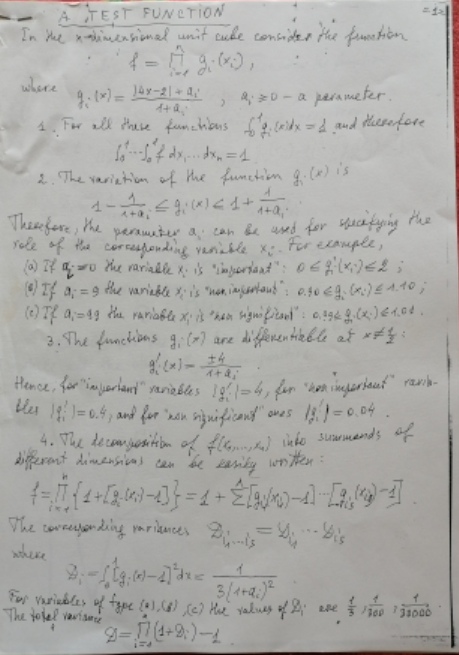 A TEST FUNCTION
In the n-dimensional unit cube consider the function
f = ∏_{i=1}^{n} g_i(x_i),
where g_i(x) = (|4x-2| + a_i)/(1+a_i), a_i ≥ 0 - a parameter.
1. For all these functions ∫_0^1 g_i(x)dx = 1 and therefore
∫_0^1 ... ∫_0^1 f dx_1 ... dx_n = 1
2. The variation of the function g_i(x) is
1 - 1/(1+a_i) ≤ g_i(x) ≤ 1 + 1/(1+a_i).
Therefore, the parameter a_i can be used for specifying the
role of the corresponding variable x_i. For example,
(a) If a_i = 0 the variable x_i is "important": 0 ≤ g_i(x_i) ≤ 2 ;
(b) If a_i = 9 the variable x_i is "non important": 0.90 ≤ g_i(x_i) ≤ 1.10 ;
(c) If a_i = 99 the variable x_i is "non significant": 0.99 ≤ g_i(x_i) ≤ 1.01.
3. The functions g_i(x) are differentiable at x ≠ 1/2 :
g_i'(x) = ±4/(1+a_i).
Hence, for "important" variables |g_i'| = 4, for "non important" varia-
bles |g_i'| = 0.4, and for "non significant" ones |g_i'| = 0.04.
4. The decomposition of f(x_1,...,x_n) into summands of
different dimensions can be easily written:
f = ∏_{i=1}^{n} {1 + [g_i(x_i) - 1]} = 1 + Σ^ [g_{i1}(x_{i1}) - 1] ... [g_{is}(x_{is}) - 1].
The corresponding variances D_{i1...is} = D_{i1} ... D_{is}
where
D_i = ∫_0^1 [g_i(x) - 1]^2 dx = 1/(3(1+a_i)^2)
For variables of type (a), (b), (c) the values of D_i are 1/3, 1/300, 1/30000.
The total variance
D = ∏_{i=1}^{n} (1+D_i) - 1